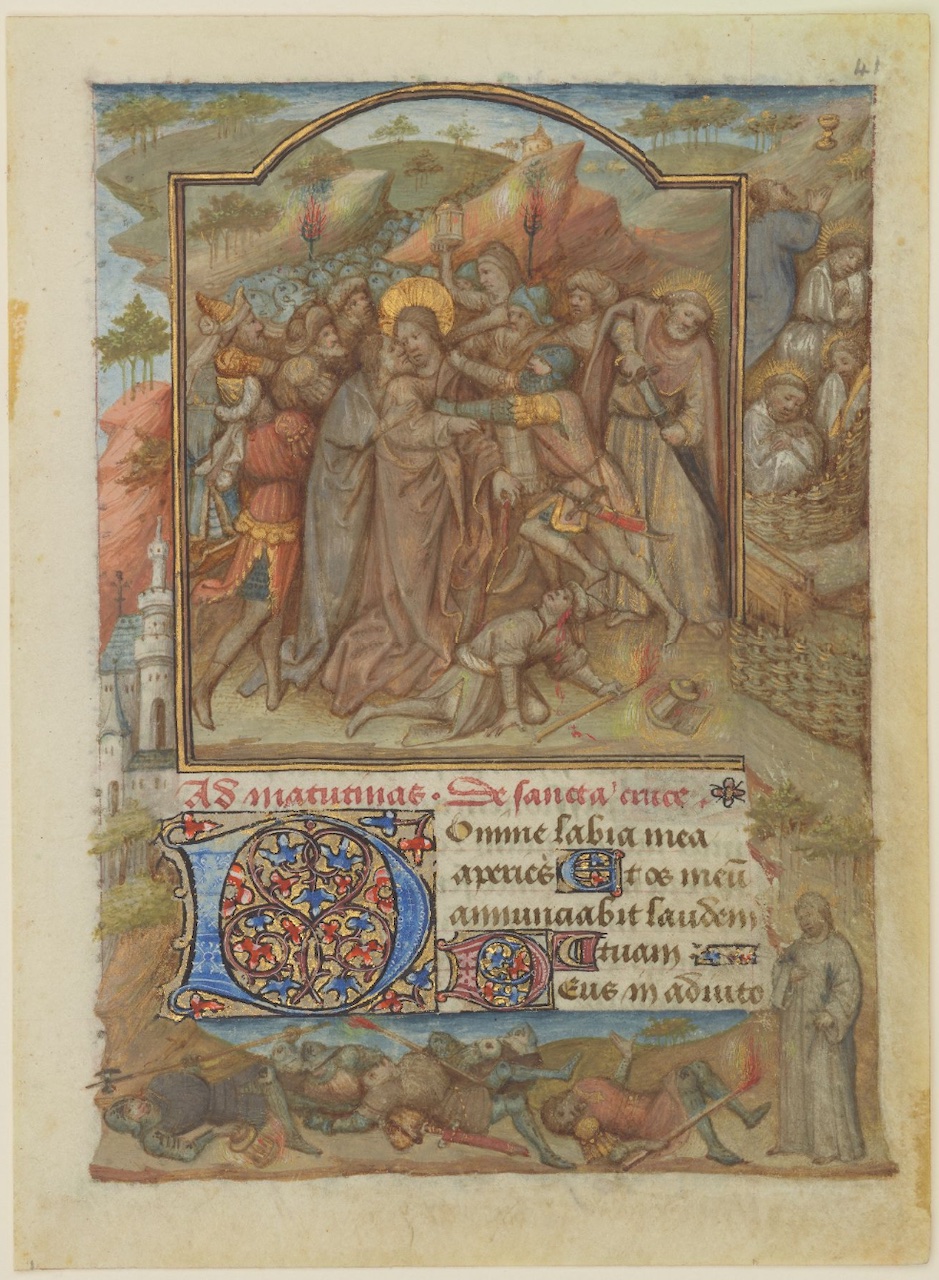 41
Ad matutinas. De sancta cruce.
Domine labia mea
aperies Et os meū
annunciabit laudem
tuam
Deus in adiuto